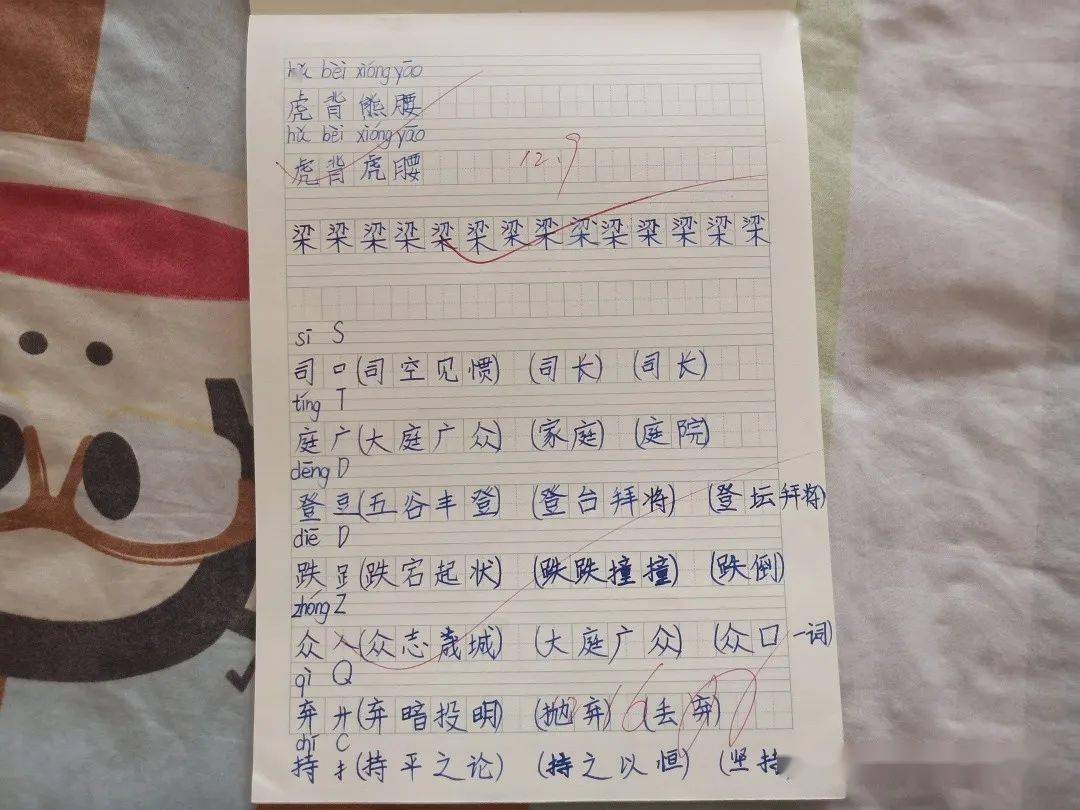 hǔ bèi xióng yāo
虎背熊腰
hǔ bèi xióng yāo
虎背虎腰
12.9
梁梁梁梁梁梁梁梁梁梁梁梁梁梁
sī S
司 口 (司空见惯) (司长) (司长)
tíng T
庭 广 (大庭广众) (家庭) (庭院)
dēng D
登 豆 (五谷丰登) (登台拜将) (登坛拜将)
diē D
跌 𧾷 (跌宕起状) (跌跌撞撞) (跌倒)
zhóng Z
众 人 (众志城) (大庭广众) (众口一词)
qì Q
弃 廾 (弃暗投明) (抛弃) (丢弃)
chí C
持 扌 (持平之论) (持之以恒) (坚持